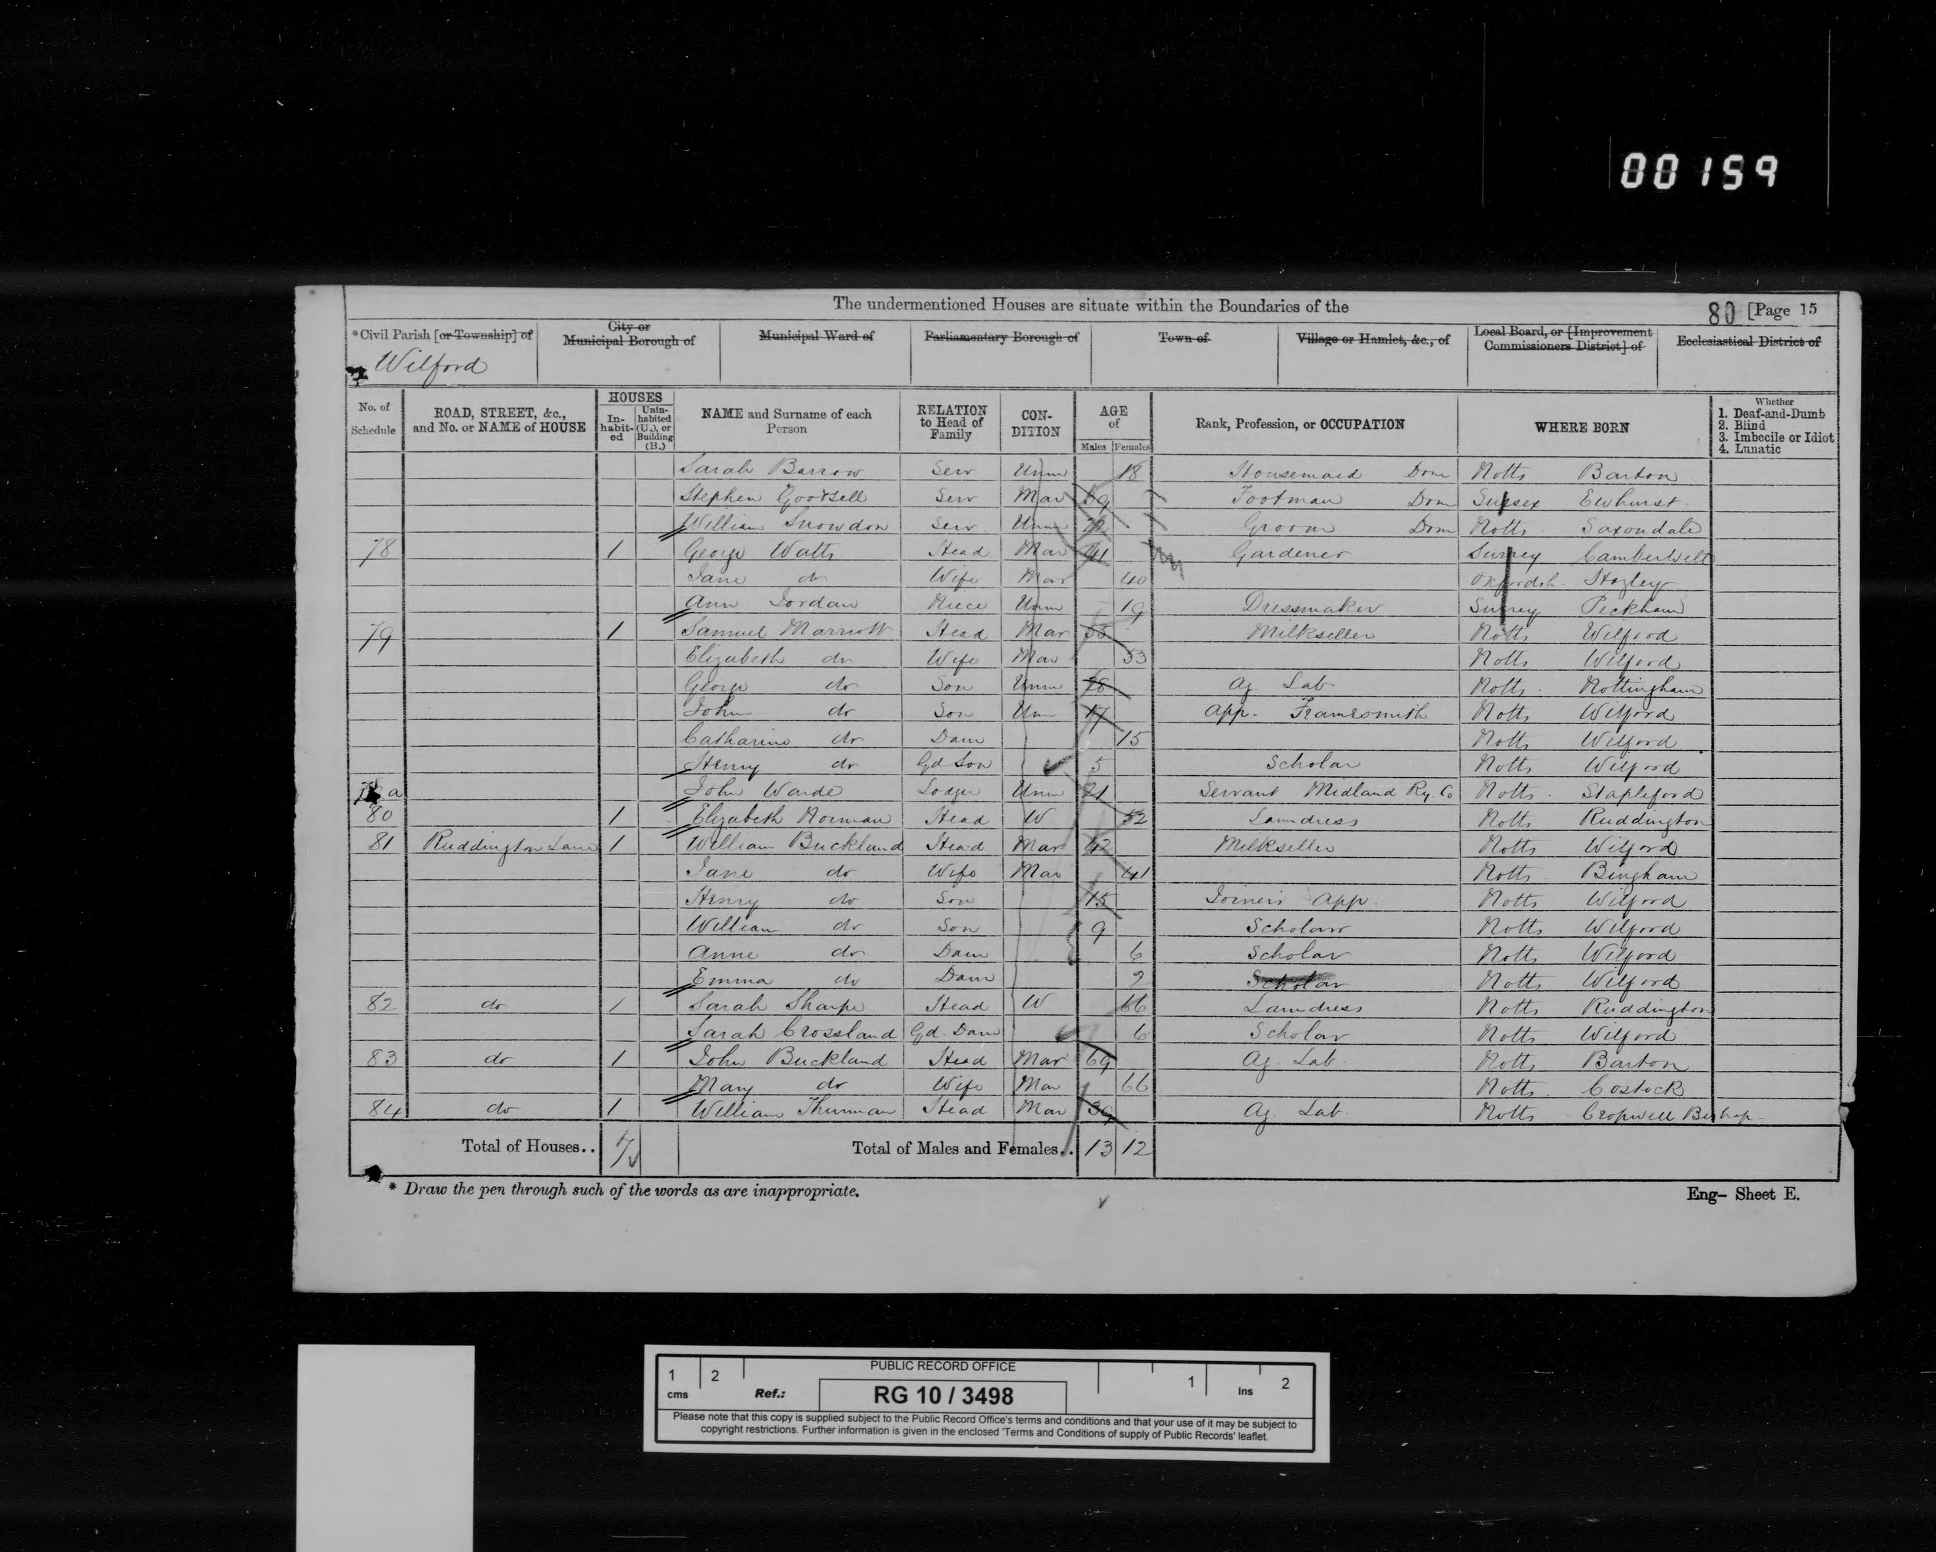 00159
The undermentioned Houses are situate within the Boundaries of the
80 [Page 15
*Civil Parish [or Township] of
Wilford
City or Municipal Borough of
Municipal Ward of
Parliamentary Borough of
Town of
Village or Hamlet, &c., of
Local Board, or [Improvement Commissioners District] of
Ecclesiastical District of
No. of Schedule
ROAD, STREET, &c., and No. or NAME of HOUSE
HOUSES
In-habit-ed
Unin-habited (U.), or Building (B.)
NAME and Surname of each Person
RELATION to Head of Family
CON-DITION
AGE of
Males Females
Rank, Profession, or OCCUPATION
WHERE BORN
Whether
1. Deaf-and-Dumb
2. Blind
3. Imbecile or Idiot
4. Lunatic
Sarah Barrow Serv Unm 18 Housemaid Dom Notts Barton
Stephen Goodsell Serv Mar Footman Dom Sussex Ewhurst
William Snowdon Serv Unm Groom Dom Notts Saxondale
78 1 George Watts Head Mar 41 Gardener Surrey Camberwell
Jane do Wife Mar 40 Oxfordsh
Ann Jordan Niece Unm 19 Dressmaker Surrey Peckham
79 1 Samuel Marriott Head Mar Milkseller Notts Wilford
Elizabeth do Wife Mar 53 Notts Wilford
George do Son Unm Ag Lab Notts Nottingham
John do Son Un 17 App. Framesmith Notts Wilford
Catharine do Daur 15 Notts Wilford
Henry do Gd Son 5 Scholar Notts Wilford
a John Warde Lodger Unm 21 Servant Midland Ry. Co Notts Stapleford
80 1 Elizabeth Norman Head W 52 Laundress Notts Ruddington
81 Ruddington Lane 1 William Buckland Head Mar 42 Milkseller Notts Wilford
Jane do Wife Mar 41 Notts Bingham
Henry do Son 15 Joiners App Notts Wilford
William do Son 9 Scholar Notts Wilford
Anne do Daur 6 Scholar Notts Wilford
Emma do Daur 2 Scholar Notts Wilford
82 do 1 Sarah Sharpe Head W 66 Laundress Notts Ruddington
Sarah Crossland Gd Daur 6 Scholar Notts Wilford
83 do 1 John Buckland Head Mar 69 Ag. Lab Notts Barton
Mary do Wife Mar 66 Notts Costock
84 do 1 William Thurman Head Mar 39 Ag. Lab Notts Cropwell Bishop
Total of Houses.. Total of Males and Females.. 13 12
* Draw the pen through such of the words as are inappropriate.
Eng- Sheet E.
1 2 PUBLIC RECORD OFFICE 1 2
cms Ref.: RG 10 / 3498 Ins
Please note that this copy is supplied subject to the Public Record Office's terms and conditions and that your use of it may be subject to
copyright restrictions. Further information is given in the enclosed 'Terms and Conditions of supply of Public Records' leaflet.